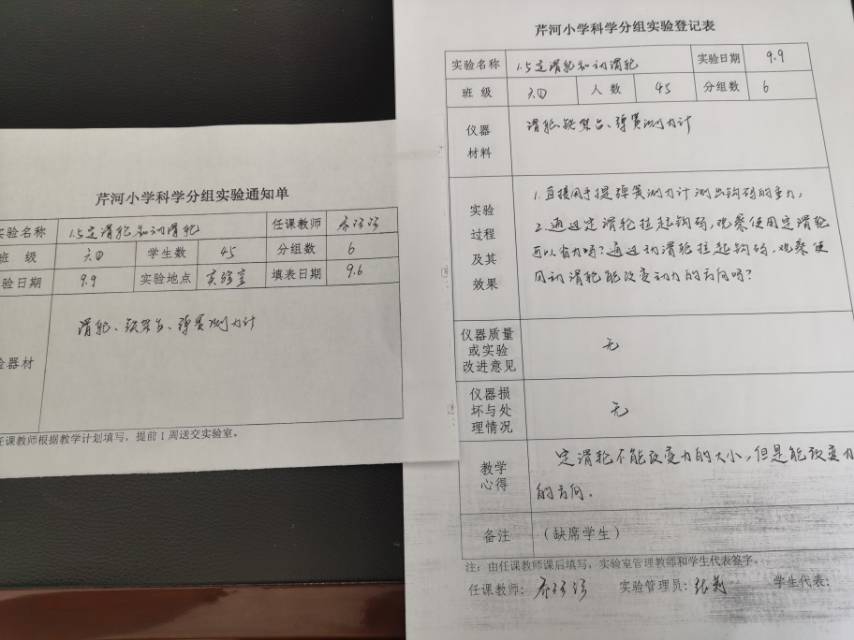 芹河小学科学分组实验通知单
实验名称 1.5定滑轮和动滑轮 任课教师
班 级 学生数 45 分组数 6
实验日期 9.9 实验地点 实验室 填表日期 9.6
验器材 滑轮、铁架台、弹簧测力计
任课教师根据教学计划填写，提前1周送交实验室。
芹河小学科学分组实验登记表
实验名称 1.5定滑轮和动滑轮 实验日期 9.9
班 级 人 数 45 分组数 6
仪器材料 滑轮、铁架台、弹簧测力计
实验过程及其效果
1.直接用手提弹簧测力计测出钩码的重力，
2.通过定滑轮拉起钩码，观察使用定滑轮
可以省力吗？通过动滑轮拉起钩码，观察使
用动滑轮能改变动力的方向吗？
仪器质量或实验改进意见 无
仪器损坏与处理情况 无
教学心得 定滑轮不能改变力的大小，但是能改变力
的方向。
备注 （缺席学生）
注：由任课教师课后填写，实验室管理教师和学生代表签字
任课教师： 实验管理员： 学生代表：